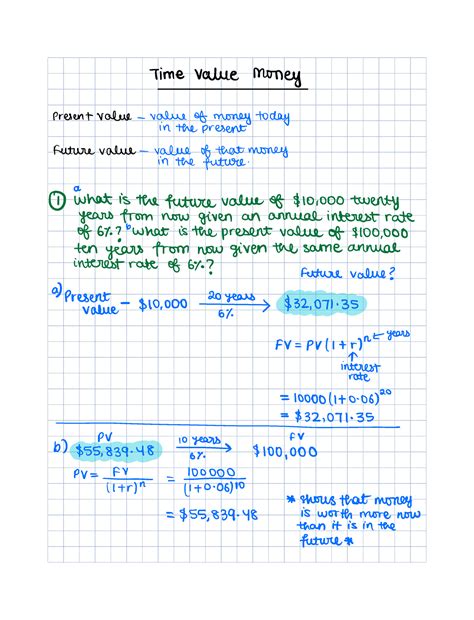 Time Value Money
Present Value – value of money today
in the present
Future value – value of that money
in the future.
a
① What is the future value of $10,000 twenty
years from now given an annual interest rate
of 6%? b What is the present value of $100,000
ten years from now given the same annual
interest rate of 6%?
Future value?
a) Present value – $10,000 20 years 6% → $32,071.35
FV = PV(1+r)^n ← years
↑
interest
rate
= 10000(1+0.06)^20
= $32,071.35
PV FV
b) $55,839.48 10 years 6% → $100,000
PV = FV/(1+r)^n = 100000/(1+0.06)^10
= $55,839.48
* shows that money
is worth more now
than it is in the
future *